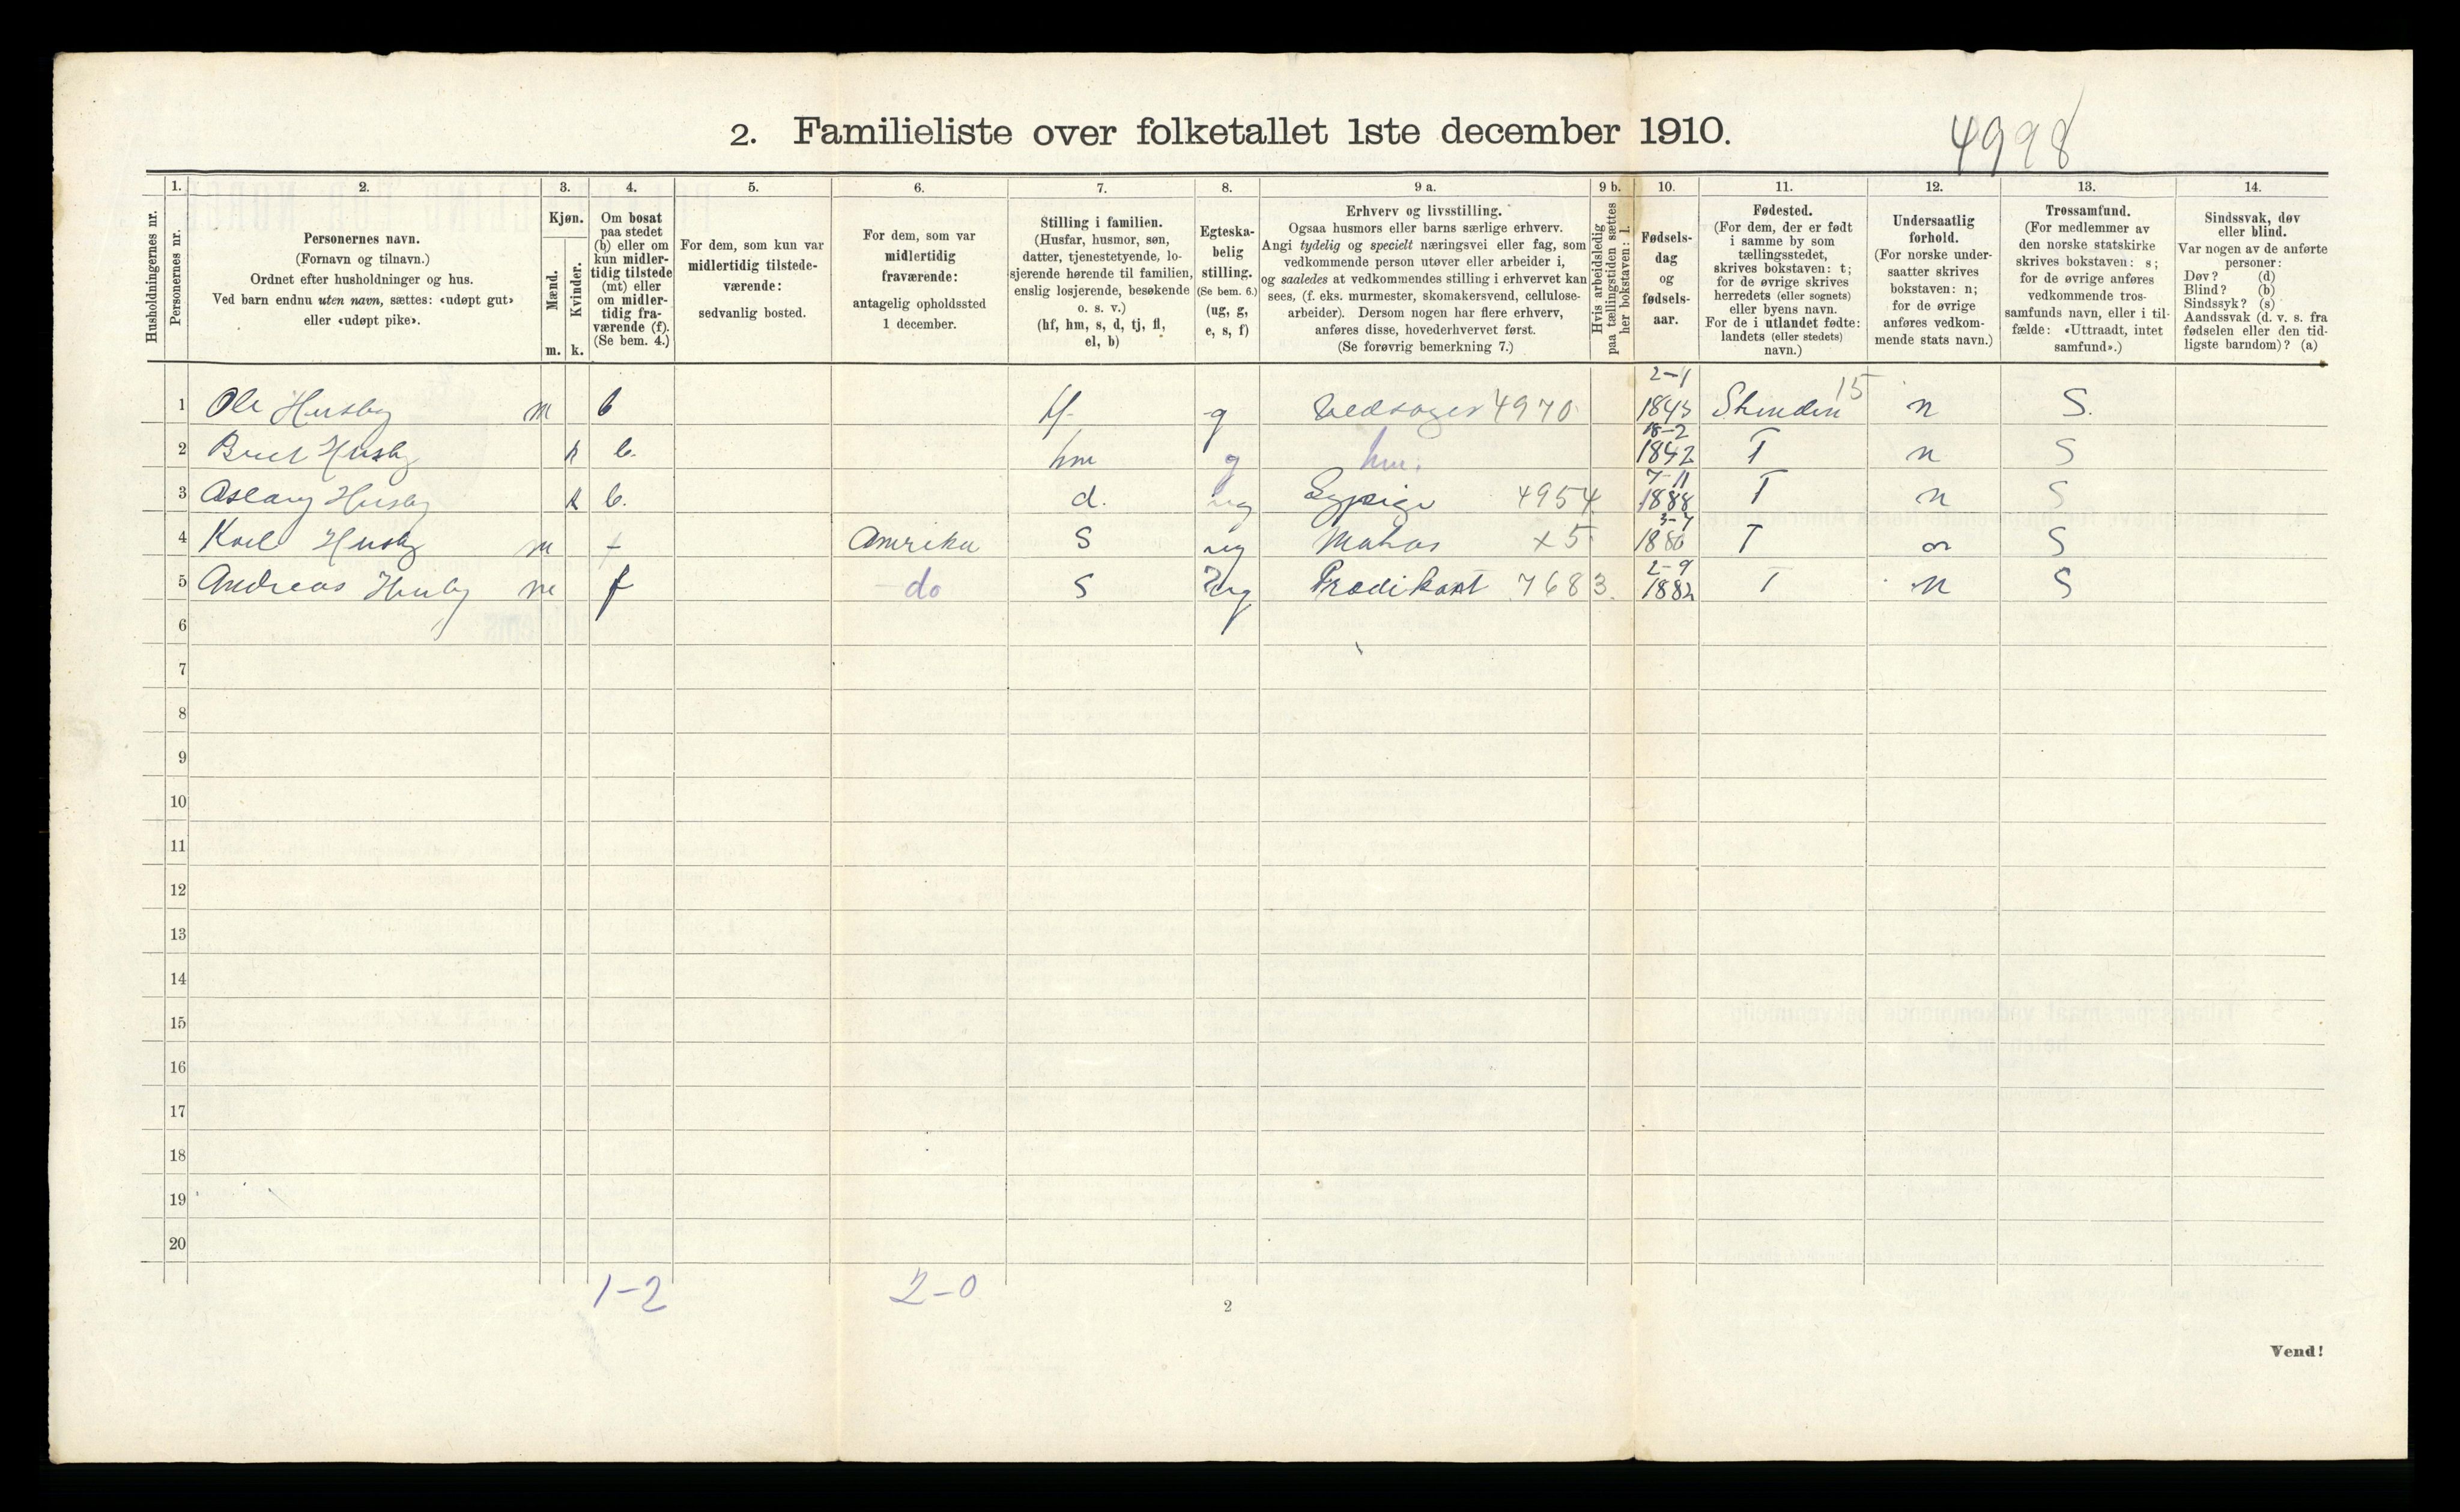 2. Familieliste over folketallet 1ste december 1910.
4998
Husholdningernes nr.
1.
Personernes nr.
2.
Personernes navn.
(Fornavn og tilnavn.)
Ordnet efter husholdninger og hus.
Ved barn endnu uten navn, sættes: «udøpt gut»
eller «udøpt pike».
3.
Kjøn.
Mænd.
Kvinder.
m. k.
4.
Om bosat
paa stedet
(b) eller om
kun midler-
tidig tilstede
(mt) eller
om midler-
tidig fra-
værende (f).
(Se bem. 4.)
5.
For dem, som kun var
midlertidig tilstede-
værende:
sedvanlig bosted.
6.
For dem, som var
midlertidig
fraværende:
antagelig opholdssted
1 december.
7.
Stilling i familien.
(Husfar, husmor, søn,
datter, tjenestetyende, lo-
sjerende hørende til familien,
enslig losjerende, besøkende
o. s. v.)
(hf, hm, s, d, tj, fl,
el, b)
8.
Egteska-
belig
stilling.
(Se bem. 6.)
(ug, g,
e, s, f)
9 a.
Erhverv og livsstilling.
Ogsaa husmors eller barns særlige erhverv.
Angi tydelig og specielt næringsvei eller fag, som
vedkommende person utøver eller arbeider i,
og saaledes at vedkommendes stilling i erhvervet kan
sees, (f. eks. murmester, skomakersvend, cellulose-
arbeider). Dersom nogen har flere erhverv,
anføres disse, hovederhvervet først.
(Se forøvrig bemerkning 7.)
9 b.
Hvis arbeidsledig
paa tællingstiden sættes
her bokstaven: l.
10.
Fødsels-
dag
og
fødsels-
aar.
11.
Fødested.
(For dem, der er født
i samme by som
tællingsstedet,
skrives bokstaven: t;
for de øvrige skrives
herredets (eller sognets)
eller byens navn.
For de i utlandet fødte:
landets (eller stedets)
navn.)
12.
Undersaatlig
forhold.
(For norske under-
saatter skrives
bokstaven: n;
for de øvrige
anføres vedkom-
mende stats navn.)
13.
Trossamfund.
(For medlemmer av
den norske statskirke
skrives bokstaven: s;
for de øvrige anføres
vedkommende tros-
samfunds navn, eller i til-
fælde: «Uttraadt, intet
samfund».)
14.
Sindssvak, døv
eller blind.
Var nogen av de anførte
personer:
Døv? (d)
Blind? (b)
Sindssyk? (s)
Aandssvak (d. v. s. fra
fødselen eller den tid-
ligste barndom)? (a)
1 Ole Husby m b hf g Vedsager 4970 2-1 1843 15 n S.
2 Husby k b. hm g hm. 18-2 1842 T n S
3 Aslaug Husby k b. d. ug Sypige 4954 7-11 1888 T n S
4 Karl Husby m f Amerika S ug x5 3-7 1880 T n S
5 Andreas Husby m f do S ug Prædikant 7683. 2-9 1882 T n S
6
7
8
9
10
11
12
13
14
15
16
17
18
19
20
1-2 2-0
2
Vend!